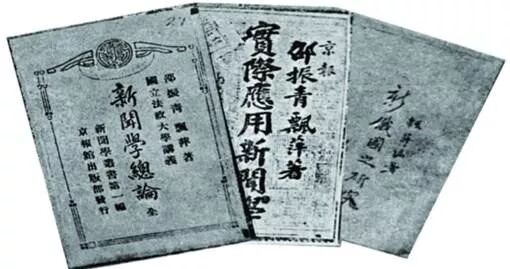 邵振青飄萍著
國立法政大學講義
新聞學總論 全
新聞學叢書第一編
京報館出版部發行
京報
邵振青飄萍著
實際應用新聞學
新俄國之研究